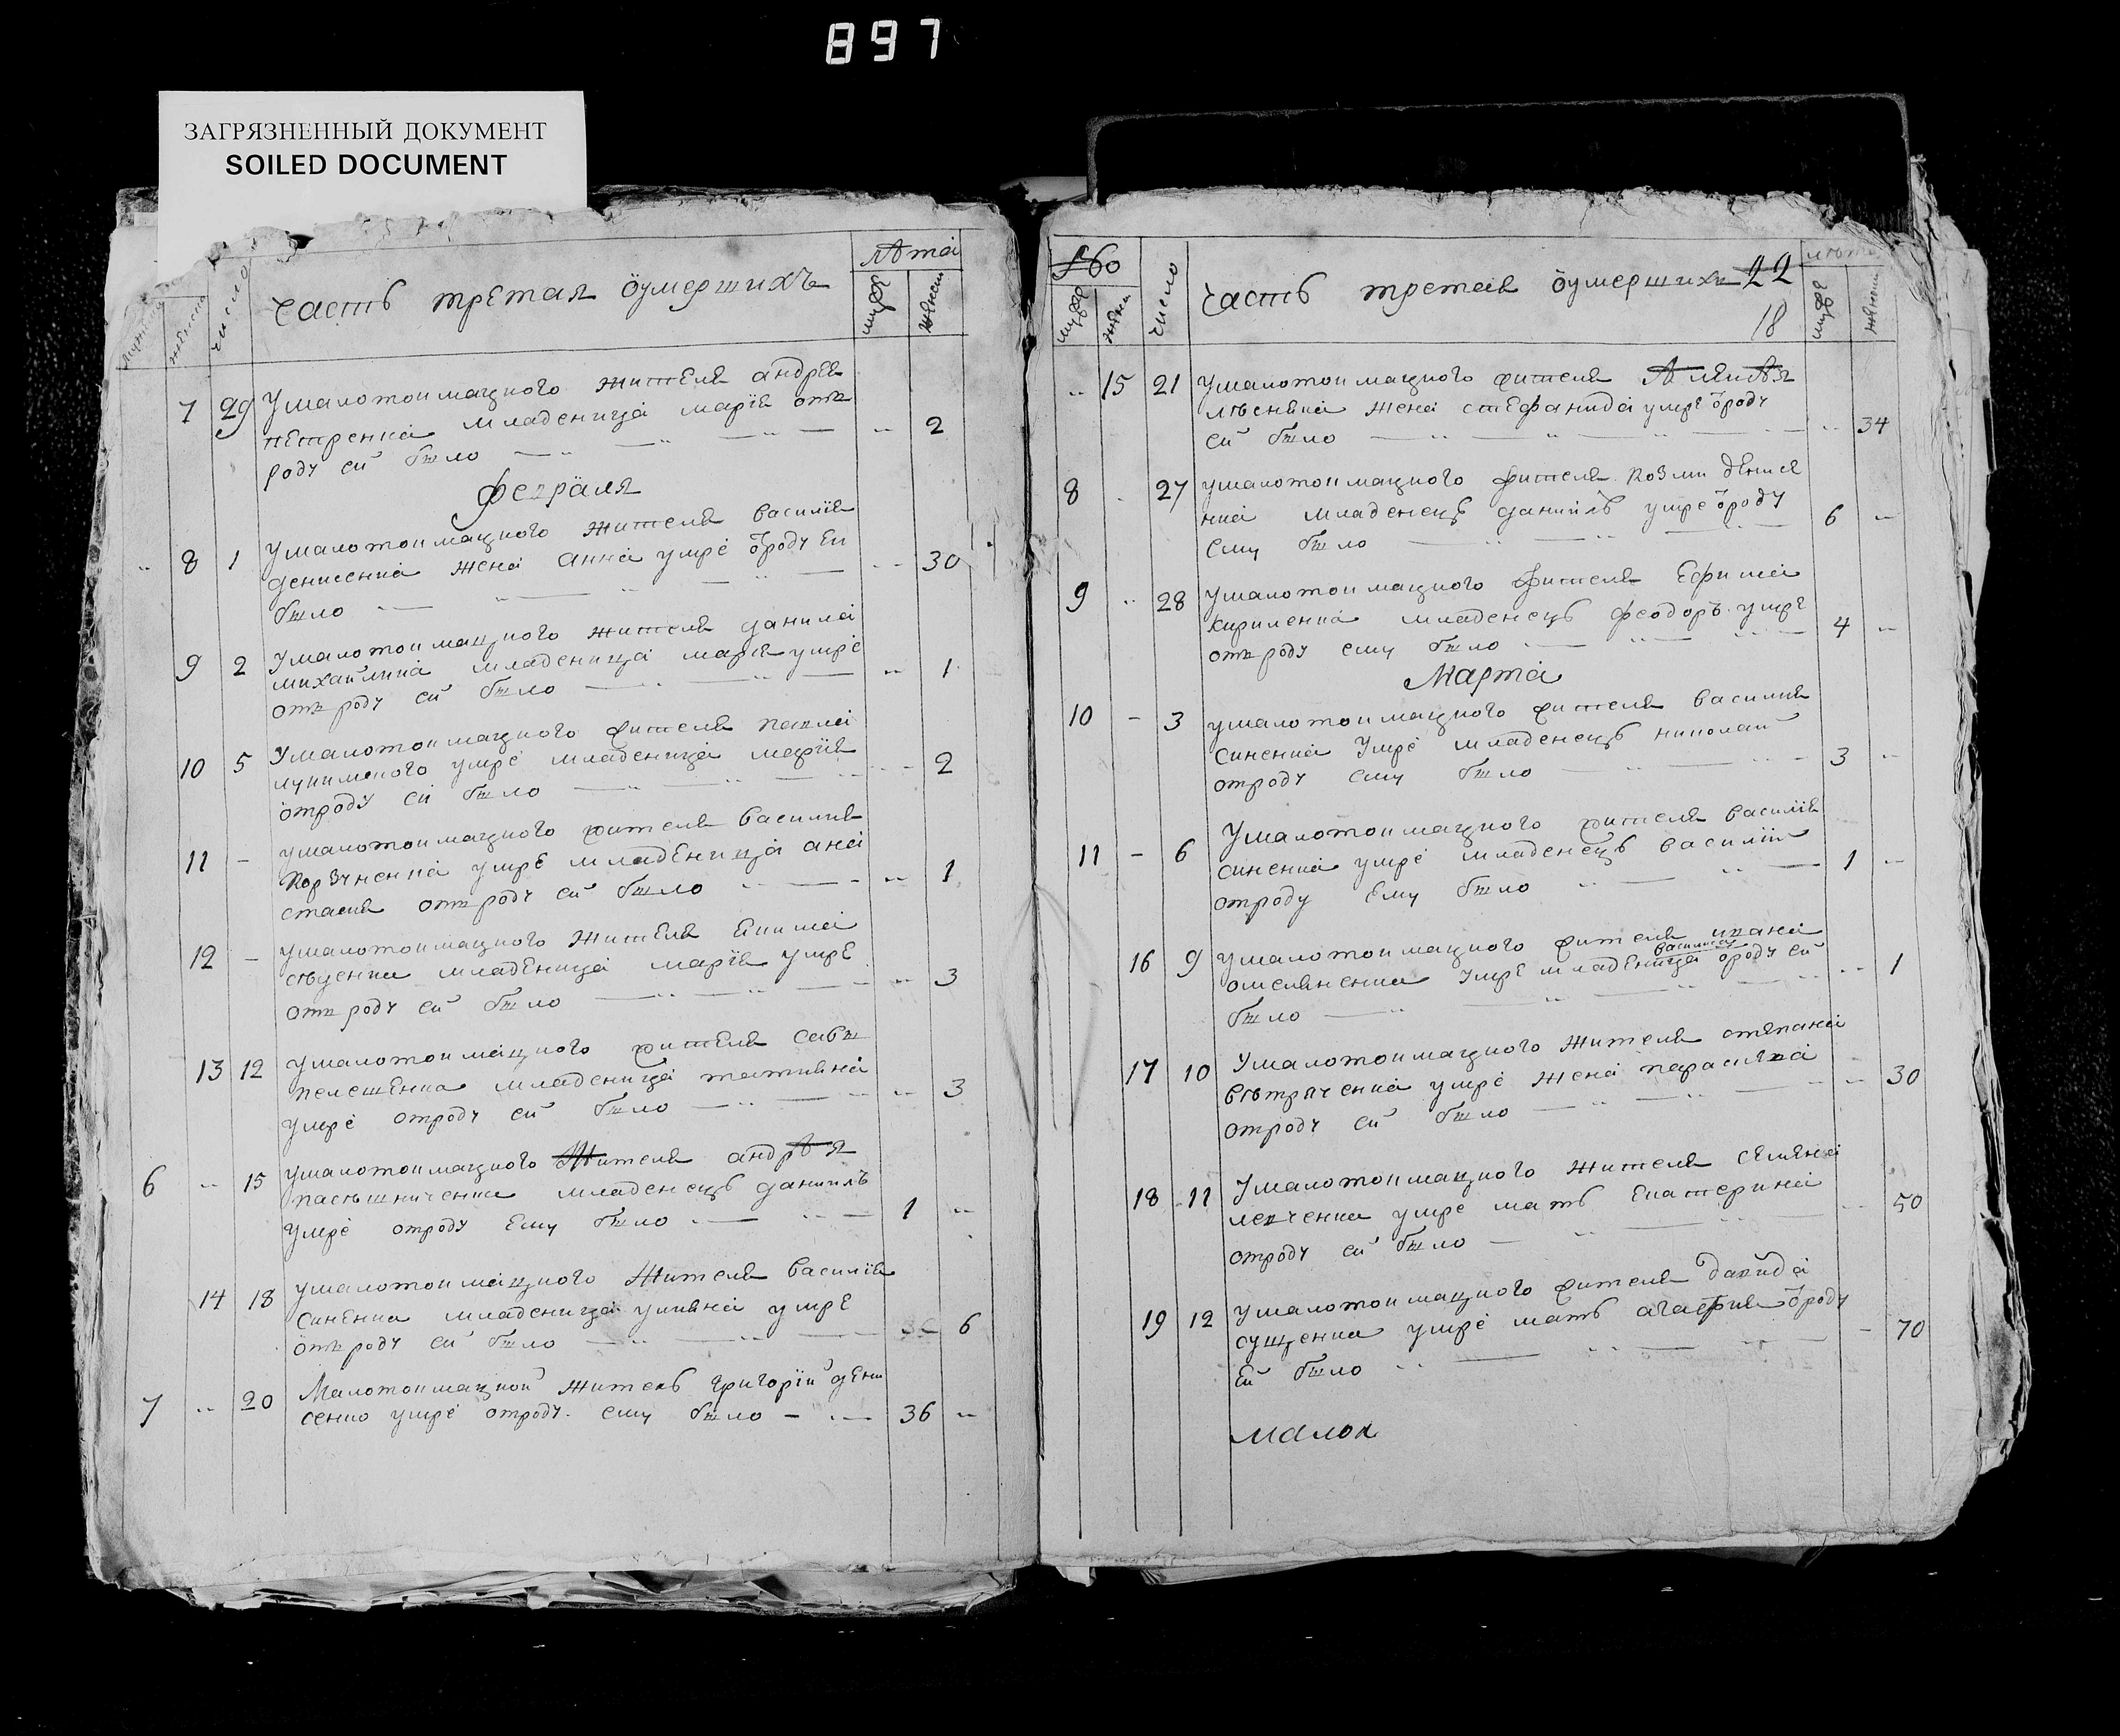 897
ЗАГРЯЗНЕННЫЙ ДОКУМЕНТ
SOILED DOCUMENT
число
часть третая оумершихъ
лѣта
7 29 умалотокмацкого жителя андрея
петренка младеница марія отъ
роду ей было 2
февраля
8 1 умалотокмацкого жителя василія
денисенка жена анна умре ѿроду ей
было 30
9 2 умалотокмацкого жителя данила
михайлика младеница марія умре
отъ роду ей было 1
10 5 умалотокмацкого жителя павла
умре младеница марія
отроду ей было 2
11 - умалотокмацкого жителя василия
корзуненка умре младеница ана
стасия отъ роду ей было 1
12 - умалотокмацкого жителя екима
младеница марія умре
отъ роду ей было 3
13 12 умалотокмацкого жителя савы
пелешенка младеница татияна
умре отроду ей было 3
6 15 умалотокмацкого жителя андрѣя
младенецъ даниилъ
умре отроду ему было 1
14 18 умалотокмацкого жителя василія
синенка младеница улияна умре
отъ роду ей было 6
7 20 малотокмацкой житель григорій дени
сенко умре отроду ему было 36
число
часть третая оумершихъ 22
18
15 21 умалотокмацкого жителя
жена стефанида умре ѿроду
ей было 34
8 27 умалотокмацкого жителя козми денисе
нка младенецъ даниилъ умре ѿроду
ему было 6
9 28 умалотокмацкого жителя ефима
кириленка младенецъ феодоръ умре
отъ роду ему было 4
марта
10 - 3 умалотокмацкого жителя василия
синенка умре младенецъ николай
отроду ему было 3
11 - 6 умалотокмацкого жителя василія
синенка умре младенецъ василій
отроду ему было 1
16 9 умалотокмацкого жителя ивана
василиса
омеляненка умре младеница ѿроду ей
было 1
17 10 умалотокмацкого жителя степана
умре жена парасѣва
отроду ей было 30
18 11 умалотокмацкого жителя семена
левченка умре мать екатерина
отроду ей было 50
19 12 умалотокмацкого жителя давида
сущенка умре мать агафия ѿроду
ей было 70
малок